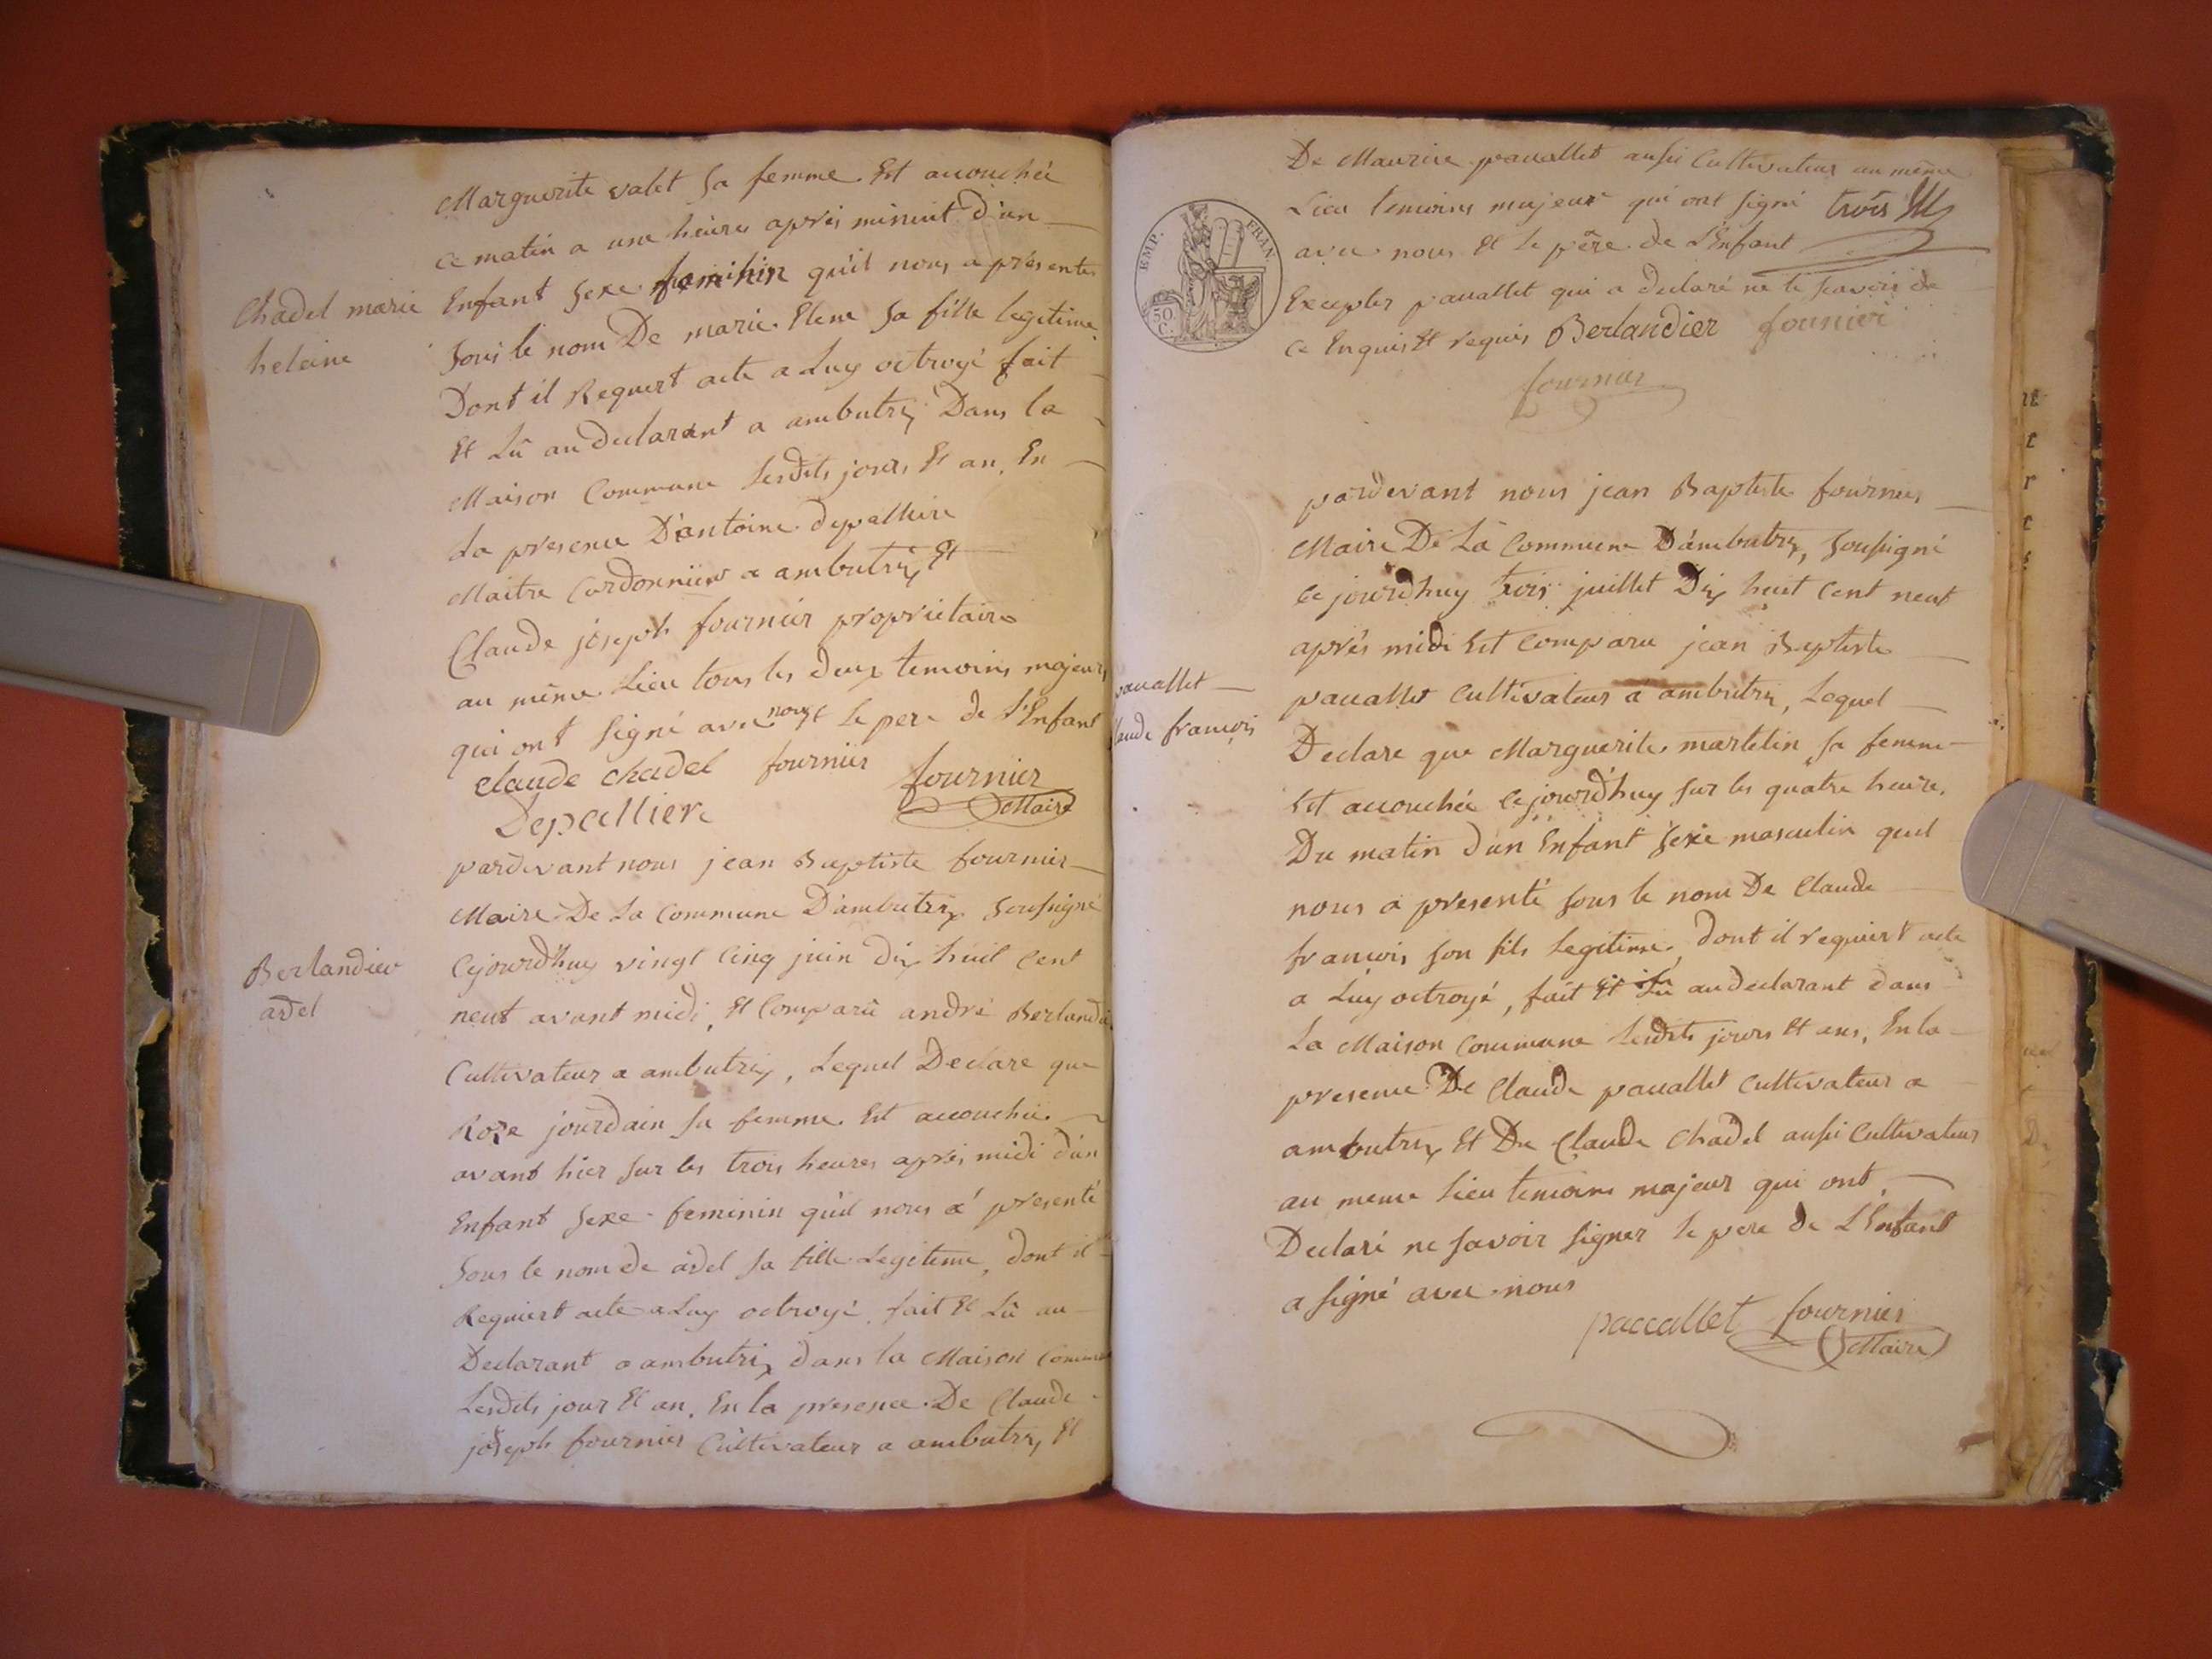 Marguerite valet sa femme Est accouchée
ce matin a une heures après minuit d'un
Chadel marie
heleine
Enfant sexe feminin qu'il nous a présenté
sous le nom De marie Elene sa fille legitime
Dont il Requert acte a Luy octroyé fait
Et Lû au declarant a ambutrix Dans la
Maison Commune lesdits jours Et an, En
La presence D'antoine depalliere
Maitre Cordonnier a ambutrix Et
Claude joseph fournier propriétaire
au même Lieu tous les deux temoins majeurs
qui ont signé avec nous et le pere de L'Enfant
Claude Chadel fournier fournier
Depallier Maire
pardevant nous jean Baptiste fournier
Maire De La Commune D'ambutrix soussigné
Berlandier
adel
Cejourdhuy vingt Cinq juin dix huit Cent
neuf avant midi, Et Comparû andré Berlandier
Cultivateur a ambutrix, Lequel Declare que
Roze jourdain sa femme Est accouchée
avant hier sur les trois heures après midi d'un
Enfant sexe feminin qu'il nous a présenté
sous le nom de adel sa fille Legitime, dont il
Requiert acte a Luy octroyé, fait Et Lû au
Declarant a ambutrix dans la Maison Commune
Lesdits jour Et an, En la presence De Claude
joseph fournier Cultivateur a ambutrix, Et
De Maurice paccallet aussi Cultivateur au même
Lieu temoins majeur qui ont signé trois
EMP. FRAN.
50 C.
avec nous Et le père de L'Enfant
Excepter paccallet qui a declaré ne le scavoir de
ce Enquis Et requis Berlandier fournier
fournier
pardevant nous jean Baptiste fournier
Maire De La Commune D'ambutrix, soussigné
ce jourdhuy trois juillet Dix huit Cent neuf
après midi Est comparu jean Baptiste
paccallet
Claude françois
paccallet Cultivateur a ambutrix, Lequel
Declare que Marguerite martelin sa femme
Est accouchée cejourdhuy sur les quatre heure
Du matin d'un Enfant sexe masculin quil
nous a presenté sous le nom De Claude
françois son fils Legitime, dont il requiert acte
a Luy octroyé, fait Et Lu au declarant dans
La Maison Commune lesdits jours Et ans, En la
presence De Claude paccallet cultivateur a
ambutrix Et De Claude Chadel aussi Cultivateur
au meme Lieu temoins majeur qui ont
Declaré ne savoir signer le pere de L'Enfant
a signé avec nous
paccallet fournier
Maire